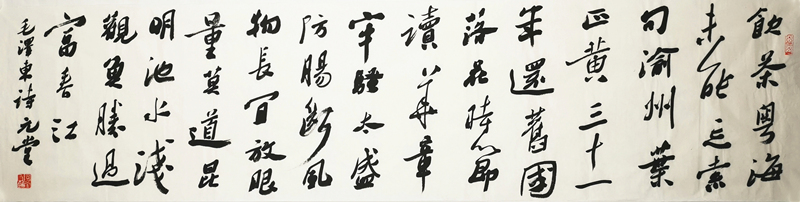 飲茶粵海
未能忘索
句渝州葉
正黄三十一
年還舊國
落花時節
讀華章
牢騷太盛
防腸斷風
物長宜放眼
量莫道昆
明池水淺
觀魚勝過
富春江
毛澤東詩元堂